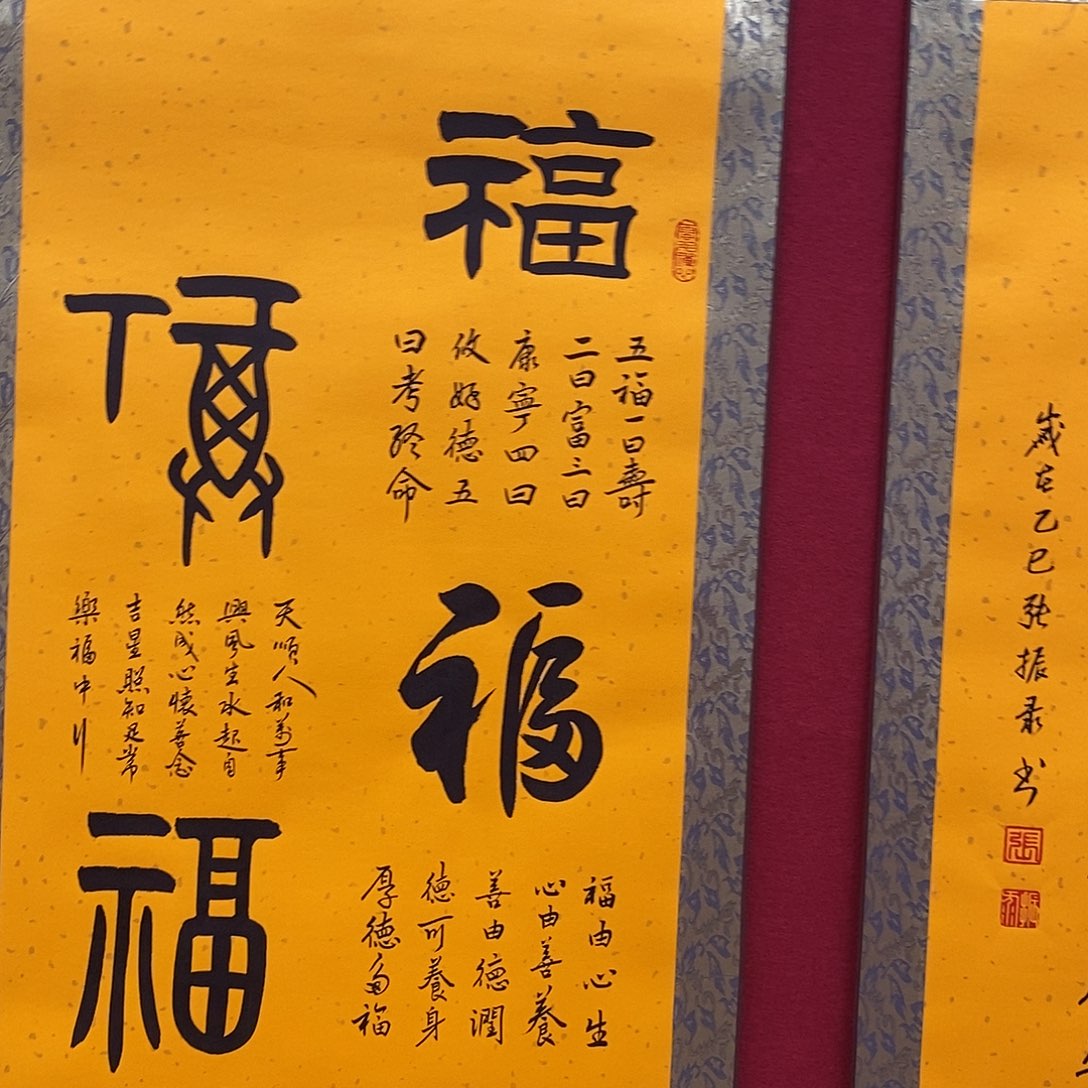 福
五福一曰壽
二曰富三曰
康寧四曰
攸好德五
曰考終命
福
福由心生
心由善養
善由德潤
德可養身
厚德多福
福
天順人和萬事
興風生水起自
然成心懷善念
吉星照知足常
樂福中
福
歲在乙巳張振录书
張